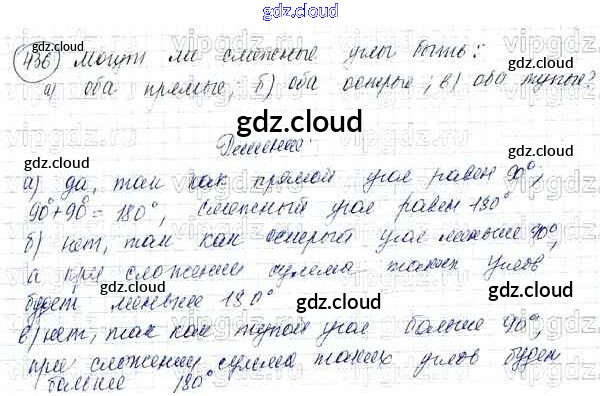 gdz.cloud
436) Могут ли смежные углы быть:
а) оба прямые; б) оба острые; в) оба тупые?
gdz.cloud
Решение:
а) да, так как прямой угол равен 90°,
90°+90°=180°, смежный угол равен 180°
б) нет, так как острый угол меньше 90°,
а при сложении сумма таких углов
будет меньше 180°
в) нет, так как тупой угол больше 90°,
при сложении сумма таких углов будет
больше 180°
gdz.cloud